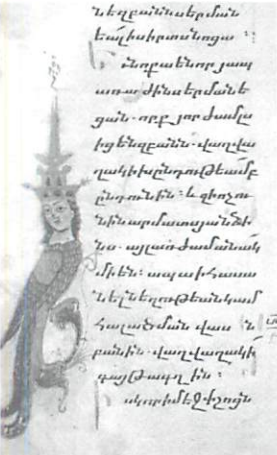 նեղբանն սերման
եալ ի սիրտս նոցա ։
նոքա են որ յապ
առաժինս երմանե
ցան · որք յորժամ լս
իցեն զբանն · վաղվա
ղակի խնդութեամբ
ընդունին ։ և զի ոչ ու
նին արմատս յանձի
նս · այլ առ ժամանակ
մի են ։ ապա ի հասա
նել նեղութեան կամ
հալածման վասն
բանին · վաղվաղակի
գայթագղին ։